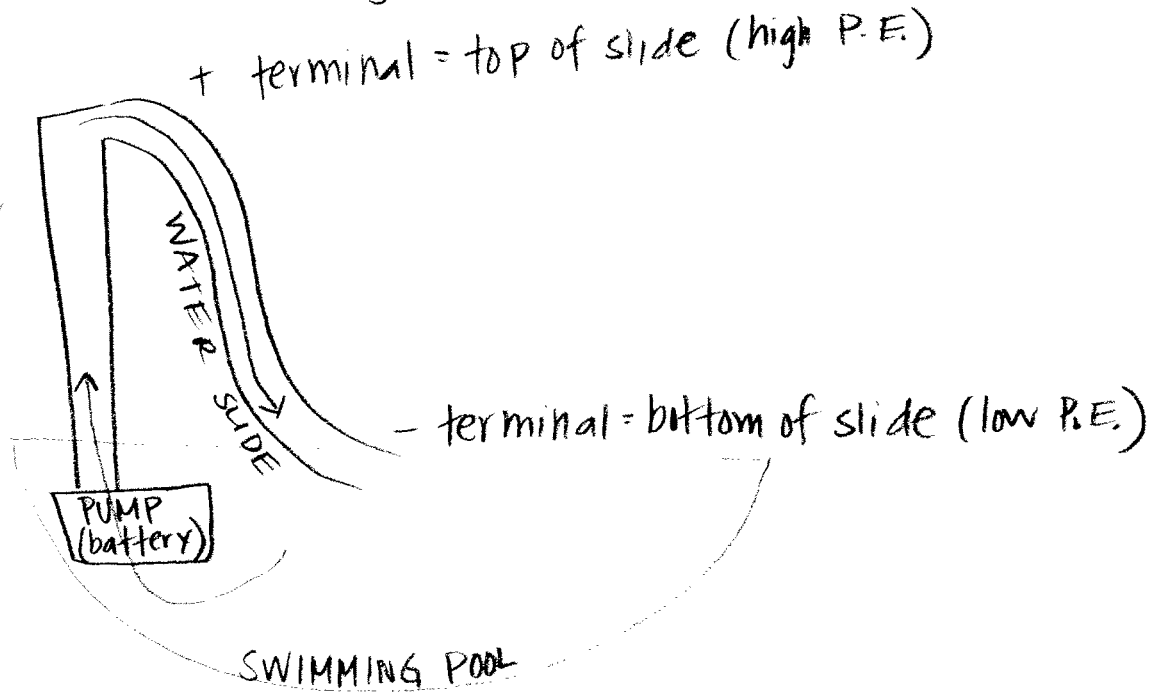 + terminal = top of slide (high P.E.)
WATER SLIDE
- terminal = bottom of slide (low P.E.)
PUMP
(battery)
SWIMMING POOL